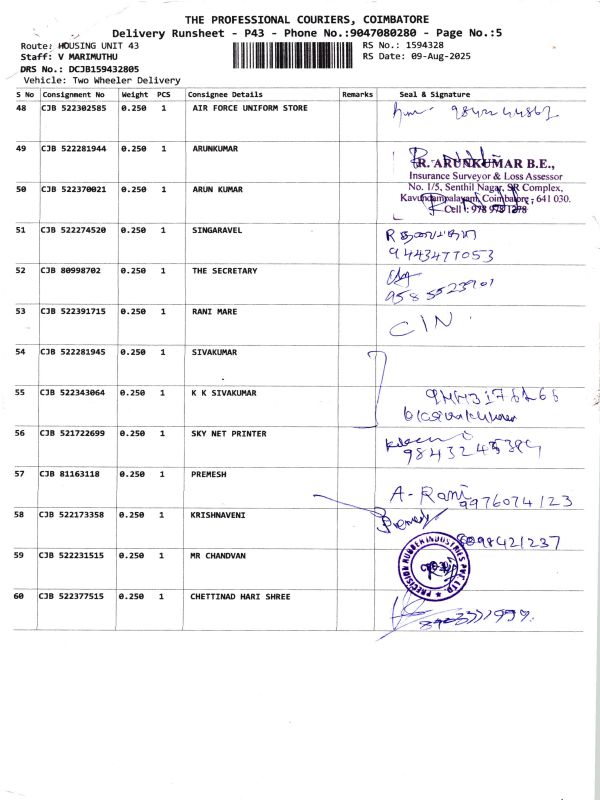 THE PROFESSIONAL COURIERS, COIMBATORE
Delivery Runsheet - P43 - Phone No.:9047080280 - Page No.:5
Route: HOUSING UNIT 43 RS No.: 1594328
Staff: V MARIMUTHU RS Date: 09-Aug-2025
DRS No.: DCJB159432805
Vehicle: Two Wheeler Delivery
S No Consignment No Weight PCS Consignee Details Remarks Seal & Signature
48 CJB 522302585 0.250 1 AIR FORCE UNIFORM STORE
49 CJB 522281944 0.250 1 ARUNKUMAR
R. ARUNKUMAR B.E.,
Insurance Surveyor & Loss Assessor
50 CJB 522370021 0.250 1 ARUN KUMAR No. 1/5, Senthil Nagar, SR Complex,
Kavundampalayam, Coimbatore - 641 030.
Cell : 978 978 1278
51 CJB 522274520 0.250 1 SINGARAVEL
9443477053
52 CJB 80998702 0.250 1 THE SECRETARY
9585523901
53 CJB 522391715 0.250 1 RANI MARE
CIN.
54 CJB 522281945 0.250 1 SIVAKUMAR
55 CJB 522343064 0.250 1 K K SIVAKUMAR
56 CJB 521722699 0.250 1 SKY NET PRINTER
57 CJB 81163118 0.250 1 PREMESH
A-Rani 9976074123
58 CJB 522173358 0.250 1 KRISHNAVENI
8098421237
59 CJB 522231515 0.250 1 MR CHANDVAN PRECISION RUBBER INDUSTRIES PVT. LTD.
60 CJB 522377515 0.250 1 CHETTINAD HARI SHREE